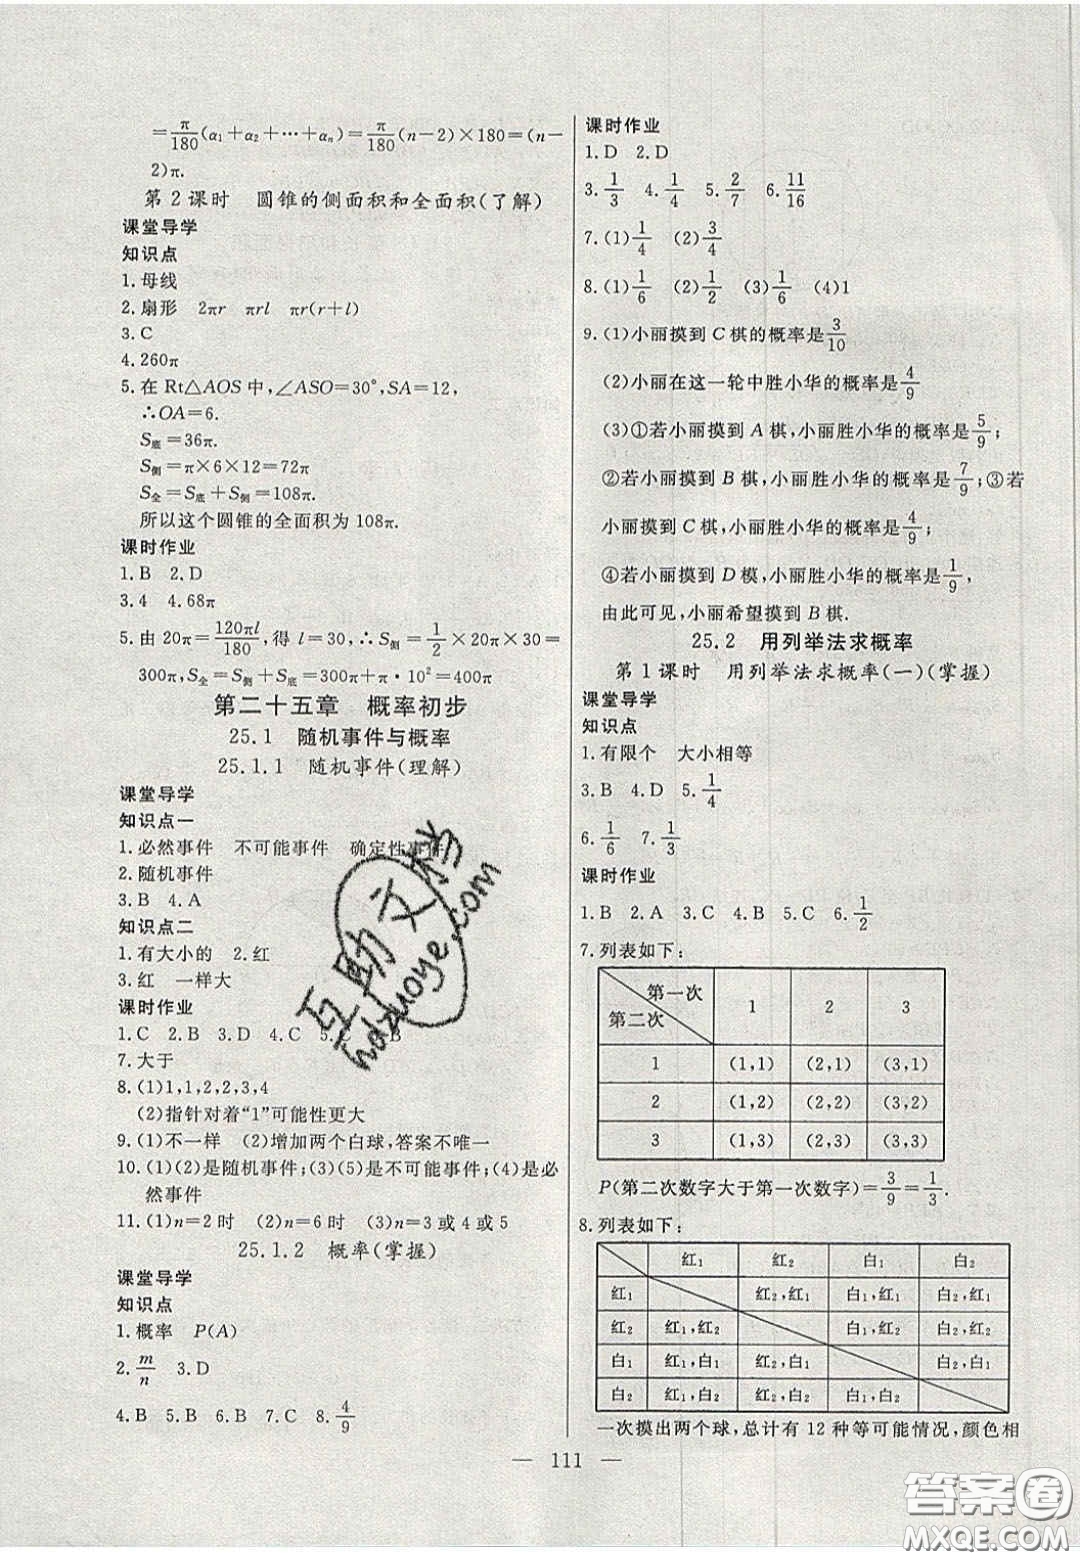 =π/180(α₁+α₂+…+αₙ)=π/180(n-2)×180=(n-
2)π.
第2课时　圆锥的侧面积和全面积(了解)
课堂导学
知识点
1.母线
2.扇形　2πr　πrl　πr(r+l)
3.C
4.260π
5.在Rt△AOS中,∠ASO=30°,SA=12,
∴OA=6.
S底=36π.
S侧=π×6×12=72π
S全=S底+S侧=108π.
所以这个圆锥的全面积为108π.
课时作业
1.B　2.D
3.4　4.68π
5.由20π=120πl/180,得l=30,∴S侧=1/2×20π×30=
300π,S全=S侧+S底=300π+π·10²=400π
第二十五章　概率初步
25.1　随机事件与概率
25.1.1　随机事件(理解)
课堂导学
知识点一
1.必然事件　不可能事件　确定性事件
2.随机事件
3.B　4.A
知识点二
1.有大小的　2.红
3.红　一样大
课时作业
1.C　2.B　3.D　4.C　5.C　B
7.大于
8.(1)1,1,2,2,3,4
(2)指针对着“1”可能性更大
9.(1)不一样　(2)增加两个白球,答案不唯一
10.(1)(2)是随机事件;(3)(5)是不可能事件;(4)是必
然事件
11.(1)n=2时　(2)n=6时　(3)n=3或4或5
25.1.2　概率(掌握)
课堂导学
知识点
1.概率　P(A)
2.m/n　3.D
4.B　5.B　6.B　7.C　8.4/9
课时作业
1.D　2.D
3.1/3　4.1/4　5.2/7　6.11/16
7.(1)1/4　(2)3/4
8.(1)1/6　(2)1/2　(3)1/6　(4)1
9.(1)小丽摸到C棋的概率是3/10
(2)小丽在这一轮中胜小华的概率是4/9
(3)①若小丽摸到A棋,小丽胜小华的概率是5/9;
②若小丽摸到B棋,小丽胜小华的概率是7/9;③若
小丽摸到C棋,小丽胜小华的概率是4/9;
④若小丽摸到D模,小丽胜小华的概率是1/9,
由此可见,小丽希望摸到B棋.
25.2　用列举法求概率
第1课时　用列举法求概率(一)(掌握)
课堂导学
知识点
1.有限个　大小相等
3.B　4.D　5.1/4
6.1/6　7.1/3
课时作业
1.B　2.A　3.C　4.B　5.C　6.1/2
7.列表如下:
第一次　第二次　1　2　3
1　(1,1)　(2,1)　(3,1)
2　(1,2)　(2,2)　(3,2)
3　(1,3)　(2,3)　(3,3)
P(第二次数字大于第一次数字)=3/9=1/3.
8.列表如下:
红₁　红₂　白₁　白₂
红₁　红₂,红₁　白₁,红₁　白₂,红₁
红₂　红₁,红₂　白₁,红₂　白₂,红₂
白₁　红₁,白₁　红₂,白₁　白₂,白₁
白₂　红₁,白₂　红₂,白₂　白₁,白₂
一次摸出两个球,总计有12种等可能情况,颜色相
— 111 —
互助文档
hdzuoye.com
答案圈
MXQE.COM